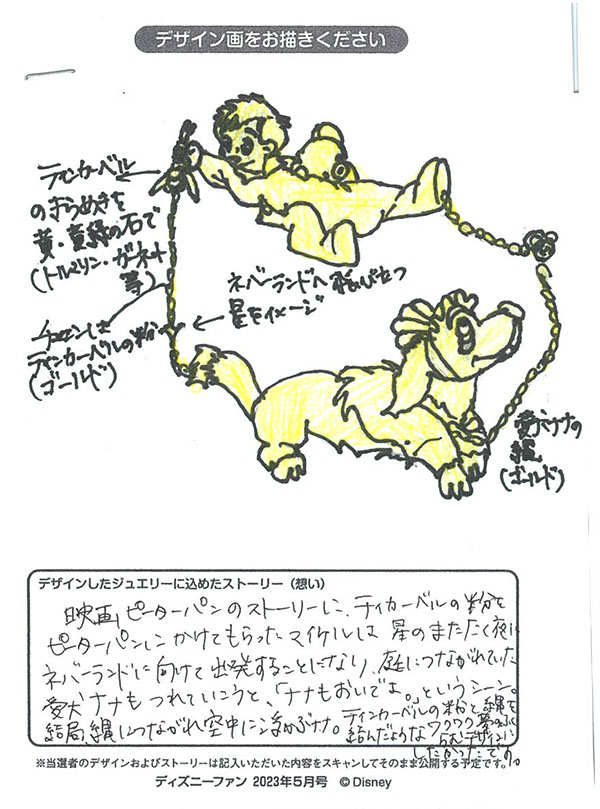 デザイン画をお描きください
ティンカーベル
のきらめきを
黄・黄緑の石で
(トルマリン・ガーネット
等)
ネバーランドへ飛び立つ
星をイメージ
チェーンは
ティンカーベルの粉
(ゴールド)
愛犬ナナの
縄
(ゴールド)
デザインしたジュエリーに込めたストーリー(想い)
映画ピーターパンのストーリーに、ティカーベルの粉を
ピーターパンにかけてもらったマイケルは星のまたたく夜に
ネバーランドに向けて出発することになり、庭につながれていた
愛犬ナナもつれていこうと、「ナナもおいでよ。」というシーン。
結局、縄につながれ空中に浮かぶナナ。ティンカーベルの粉と縄を
結んだようなワクワク夢のふく
らむデザインに
したかったです。
※当選者のデザインおよびストーリーは記入いただいた内容をスキャンしてそのまま公開する予定です。
ディズニーファン 2023年5月号 ©Disney